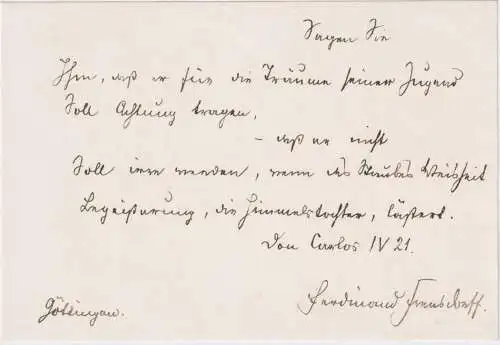 Sagen Sie
Ihm, daß er für die Träume seiner Jugend
Soll Achtung tragen,
– daß er nicht
Soll irre werden, wenn des Staubes Weisheit
Begeisterung, die Himmelstochter, lästert.
Don Carlos IV 21.
Ferdinand Frensdorff.
Göttingen.